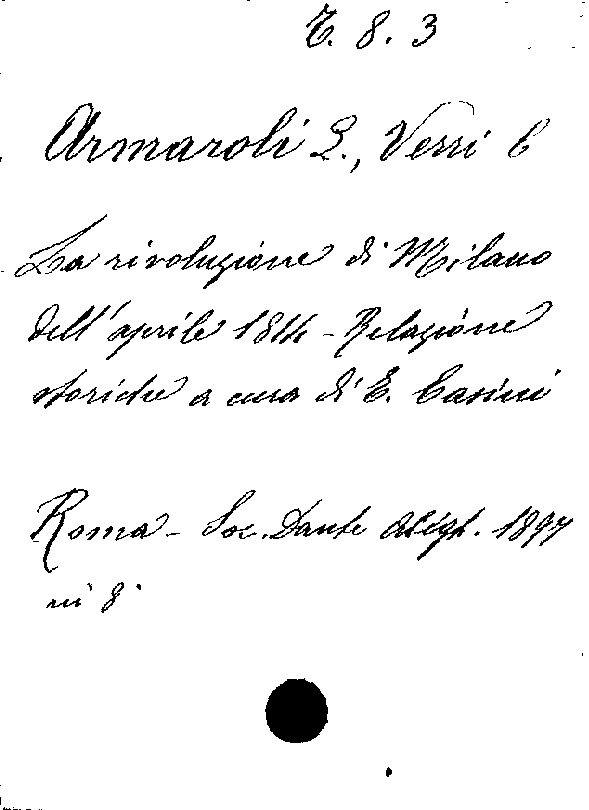 T. 8. 3
Armaroli L., Verri C
La rivoluzione di Milano
dell'aprile 1814 - Relazione
storiche a cura di E. Casini
Roma - Soc. Dante Aligh. 1897
in 8°